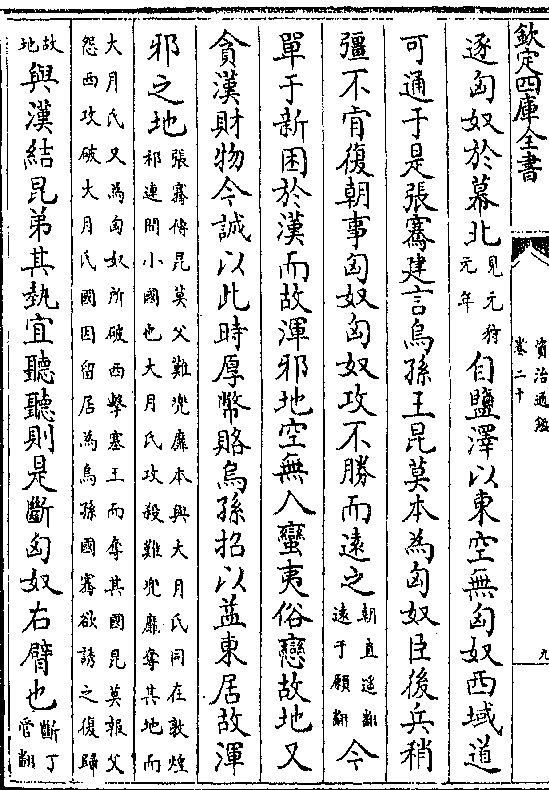 欽定四庫全書
資治通鑑
卷二十
九
逐匈奴於幕北見元狩元年自鹽澤以東空無匈奴西域道
可通于是張騫建言烏孫王昆莫本為匈奴臣後兵稍
彊不肯復朝事匈奴匈奴攻不勝而遠之朝直遥翻遠于願翻今
單于新困於漢而故渾邪地空無人蠻夷俗戀故地又
貪漢財物今誠以此時厚幣賂烏孫招以益東居故渾
邪之地張騫傳昆莫父難兜靡本與大月氏同在敦煌祁連間小國也大月氏攻殺難兜靡奪其地而
大月氏又為匈奴所破西擊塞王而奪其國昆莫報父怨西攻破大月氏國因留居為烏孫國騫欲誘之復歸
故地與漢結昆弟其埶宜聽聽則是斷匈奴右臂也斷丁管翻